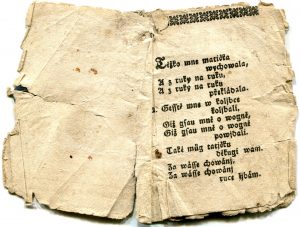 Těžko mne matička
wychowala,
A z ruky na ruku,
A z ruky na ruku
překládala.
Gesstě mne w koljbce
koljbali,
Giž gsau mně o wogně,
Giž gsau mně o wogně
powjdali.
Také můg tatjčku
děkugi wám.
Za wásse chowánj
Za wásse chowánj
ruce ljbám.